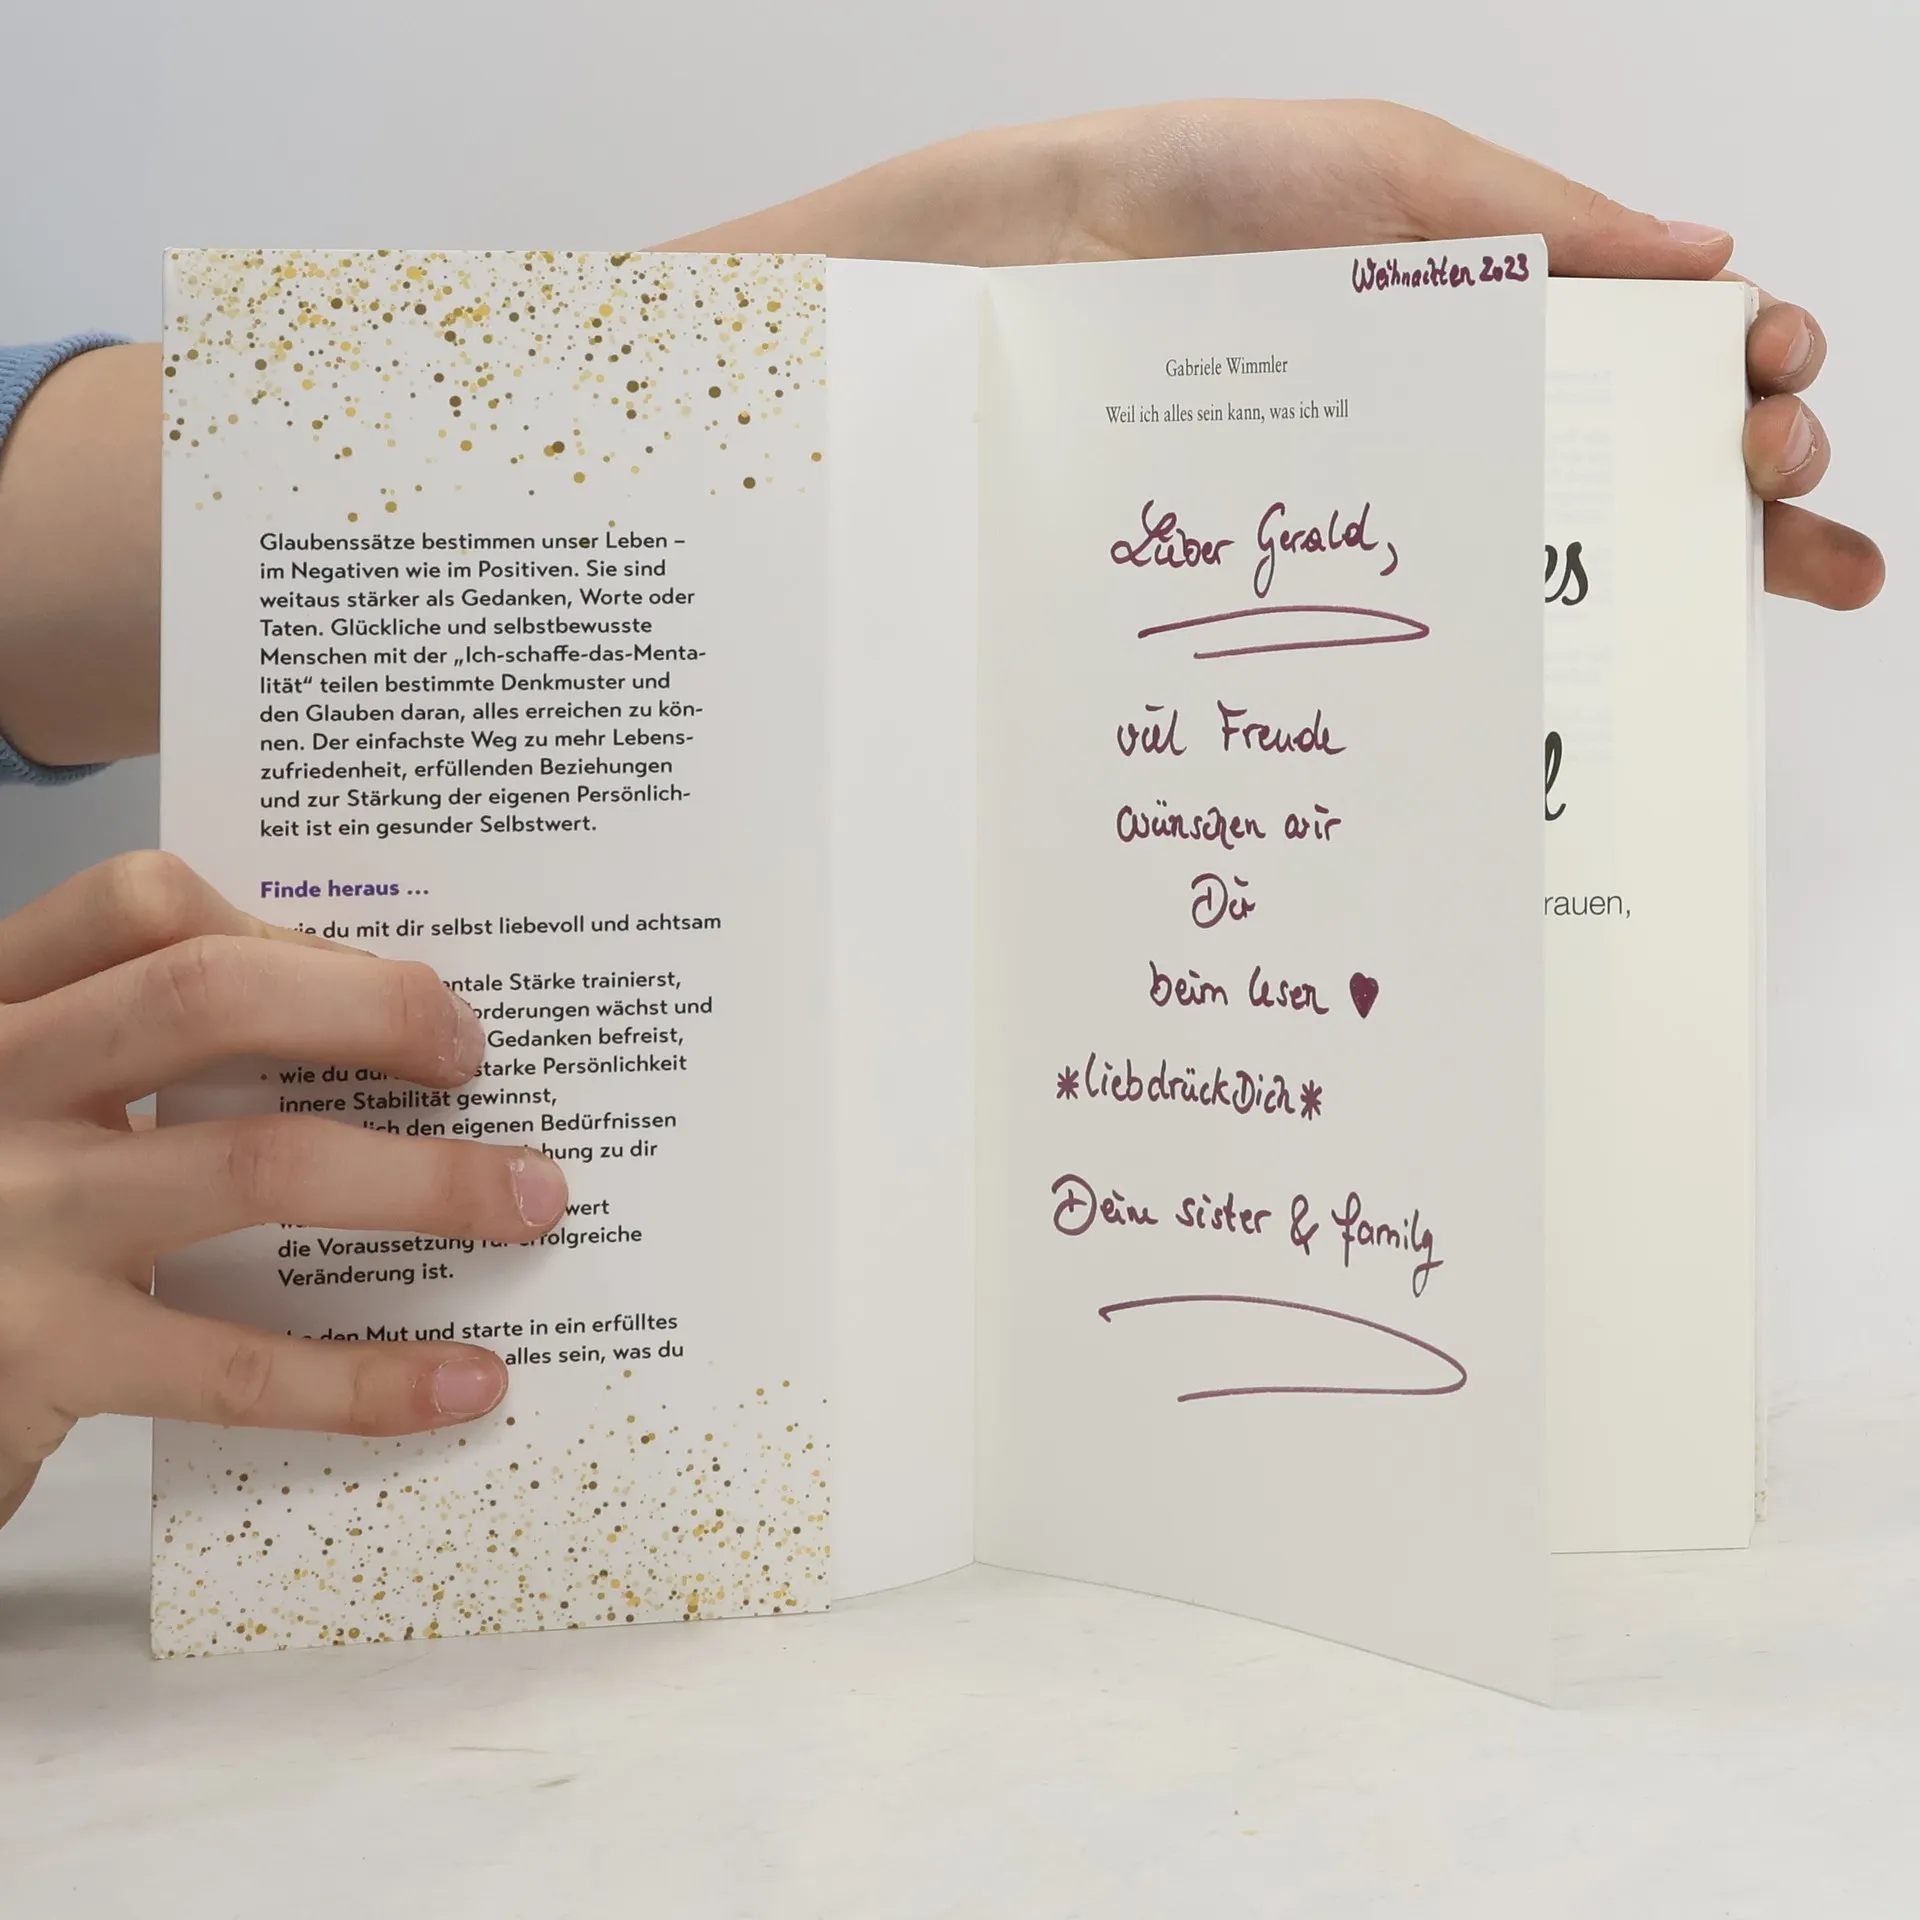 Glaubenssätze bestimmen unser Leben –
im Negativen wie im Positiven. Sie sind
weitaus stärker als Gedanken, Worte oder
Taten. Glückliche und selbstbewusste
Menschen mit der „Ich-schaffe-das-Menta-
lität“ teilen bestimmte Denkmuster und
den Glauben daran, alles erreichen zu kön-
nen. Der einfachste Weg zu mehr Lebens-
zufriedenheit, erfüllenden Beziehungen
und zur Stärkung der eigenen Persönlich-
keit ist ein gesunder Selbstwert.
Finde heraus ...
du mit dir selbst liebevoll und achtsam
Stärke trainierst,
wächst und
Gedanken befreist,
• wie du starke Persönlichkeit
innere Stabilität gewinnst,
den eigenen Bedürfnissen
zu dir
die Voraussetzung
Veränderung ist.
den Mut und starte in ein erfülltes
alles sein, was du
Weihnachten 2023
Gabriele Wimmler
Weil ich alles sein kann, was ich will
Lieber Gerald,
viel Freude
wünschen wir
Dir
beim Lesen ♥
*liebdrückDich*
Deine sister & family
rauen,